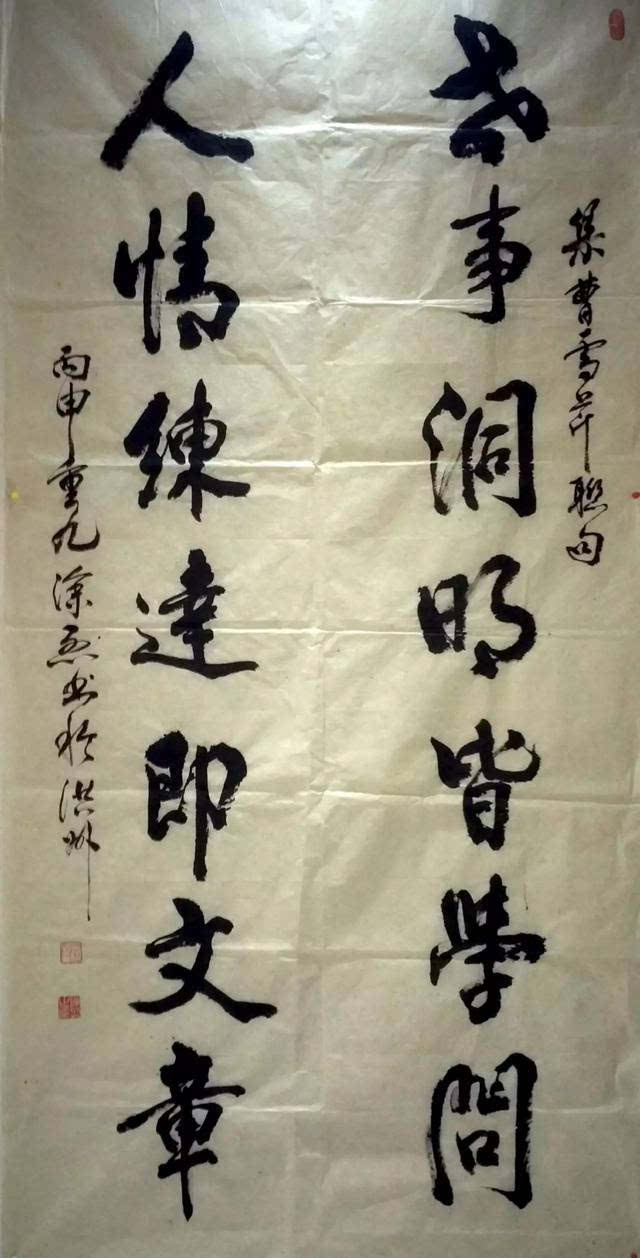 集曹雪芹聯句
世事洞明皆學問
人情練達即文章
丙申重九涂烈书於洪州